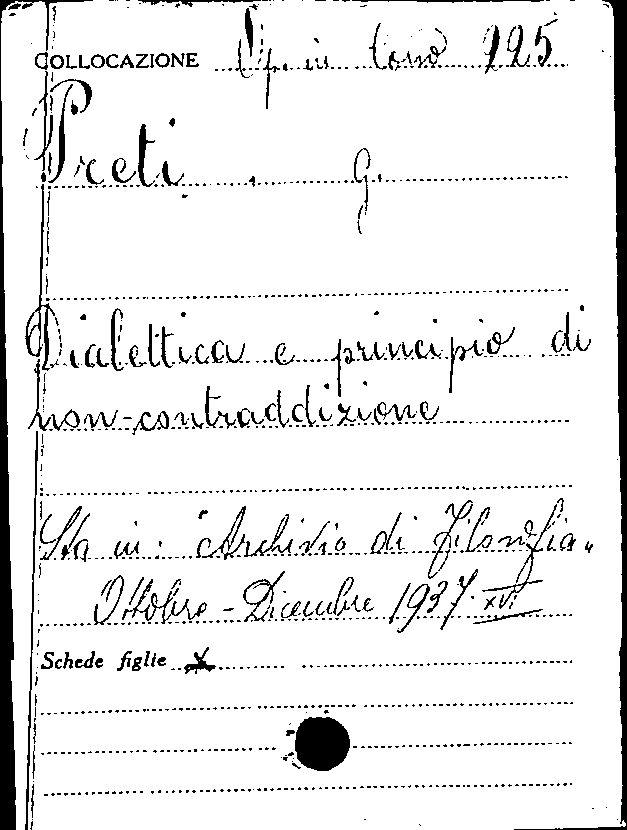 COLLOCAZIONE Op. in Cons 225
Preti. G.
Dialettica e principio di
non-contraddizione
Sta in: "Archivio di Filosofia"
Ottobre - Dicembre 1937. XVI
Schede figlie x